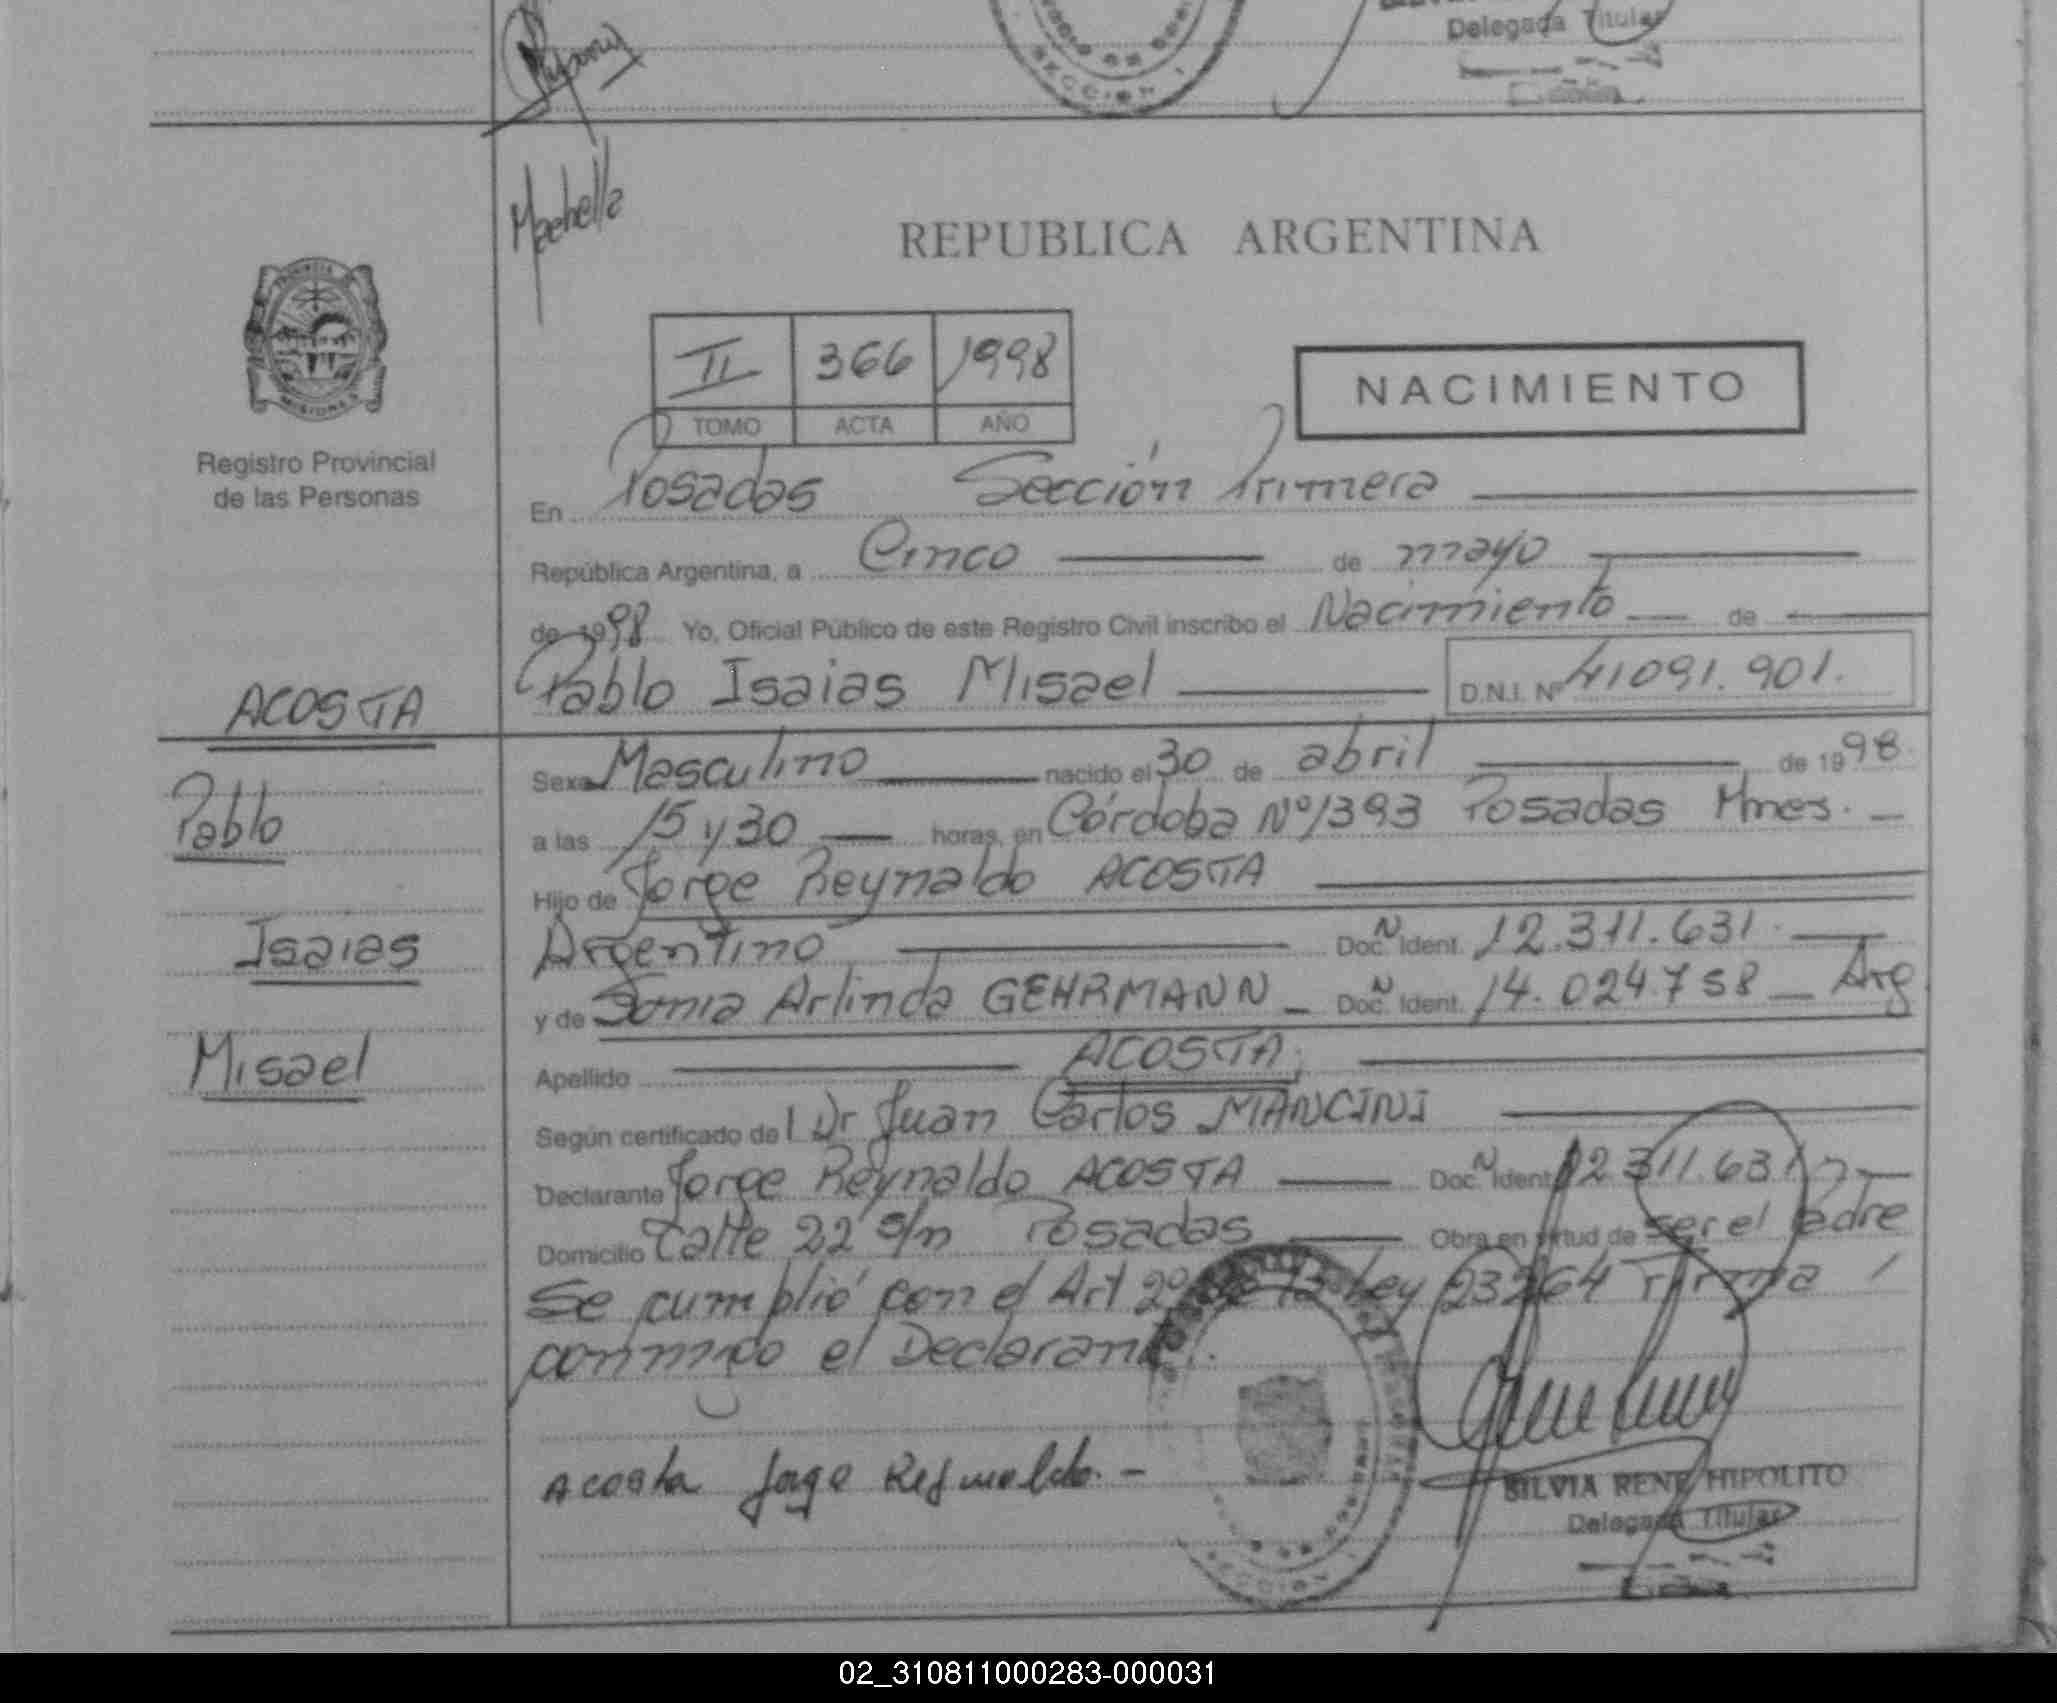 Delegada Titular
SECCION 1
REPUBLICA ARGENTINA
PROVINCIA
MISIONES
Registro Provincial
de las Personas
II 366 1998
TOMO ACTA AÑO
NACIMIENTO
En Posadas Sección Primera
República Argentina, a Cinco de mayo
de 1998 Yo, Oficial Público de este Registro Civil inscribo el Nacimiento de
Pablo Isaias Misael D.N.I. Nº 41091.901.
ACOSTA
Pablo
Isaias
Misael
Sexo Masculino nacido el 30 de abril de 1998
a las 15 y 30 horas, en Córdoba Nº 1393 Posadas Mnes.
Hijo de Jorge Reynaldo ACOSTA
Argentino Doc. N Ident. 12.311.631.
y de Sonia Arlinda GEHRMANN Doc. N Ident. 14.024.758 Arg
Apellido ACOSTA
Según certificado del Dr Juan Carlos MANCINI
Declarante Jorge Reynaldo ACOSTA Doc. N Ident. 12.311.631
Domicilio Calle 22 s/n Posadas Obra en virtud de ser el padre
Se cumplió con el Art 2º de la Ley 23264 Firma
conmigo el Declarante.
Acosta Jorge Reynaldo.-
SILVIA RENE HIPOLITO
Delegada Titular
SECCION 1
02_310811000283-000031